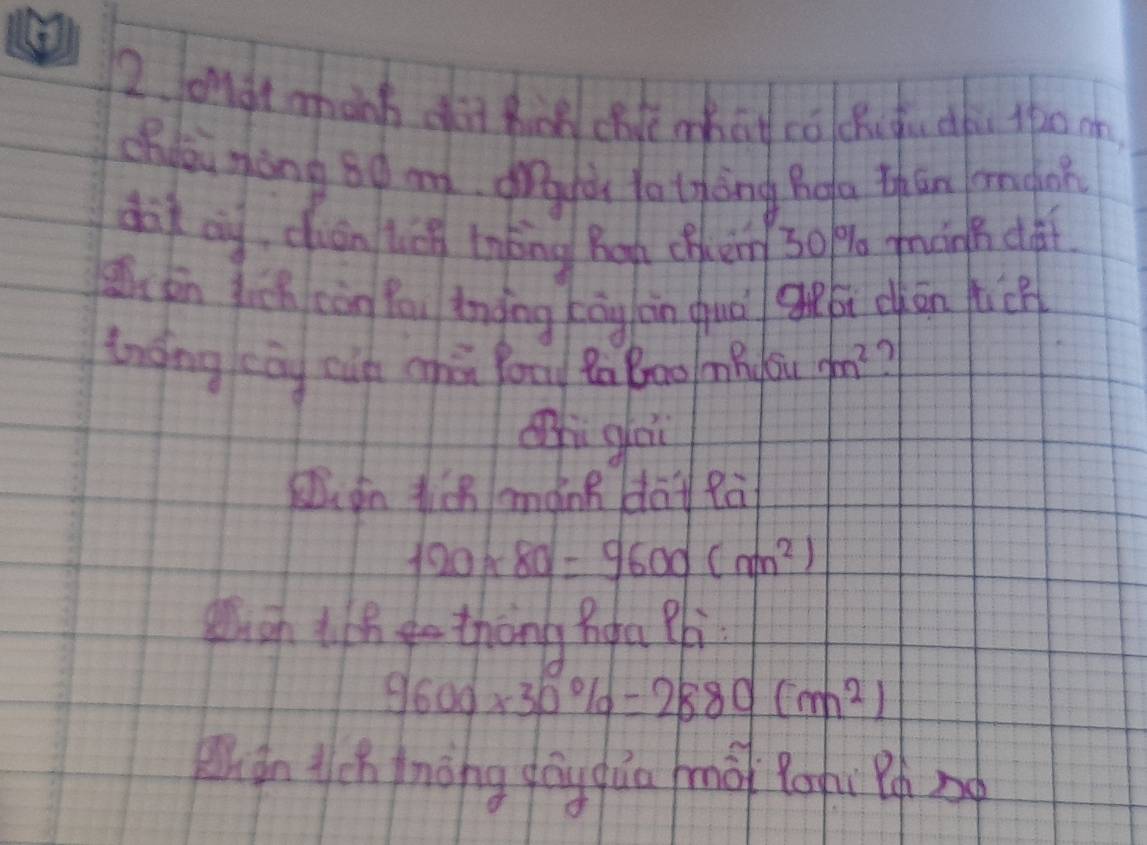 2. Một mảnh đất hình chữ nhật có chiều dài 120 m,
chiều rộng 80 m. Người ta trồng hoa trên mảnh
đất ấy, diện tích trồng hoa chiếm 30% mảnh đất.
Diện tích còn lại trồng cây ăn quả. Hỏi diện tích
trồng cây của mỗi loại là bao nhiêu m²?
Bài giải
Diện tích mảnh đất là
120 x 80 = 9600 (m²)
Diện tích trồng hoa là:
9600 x 30% = 2880 (m²)
Diện tích trồng cây của mỗi loại là